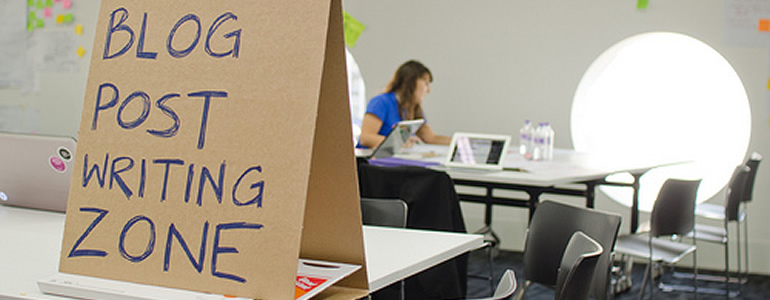 BLOG
POST
WRITING
ZONE